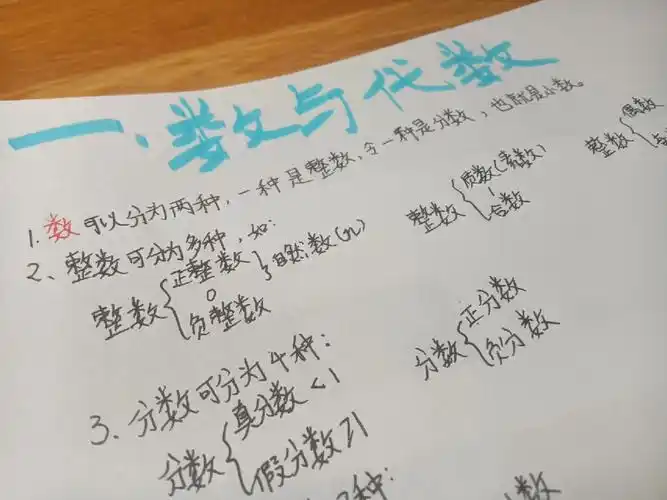 一、数与代数
1. 数可以分为两种，一种是整数，令一种是分数，也就是小数。
2、整数可分为多种，如：
整数{正整数 0 负整数 }自然数(n)
整数{质数(素数) 1 合数
整数{偶数
3、分数可分为4种：
分数{真分数<1 假分数≥1
分数{正分数 负分数
种：
数